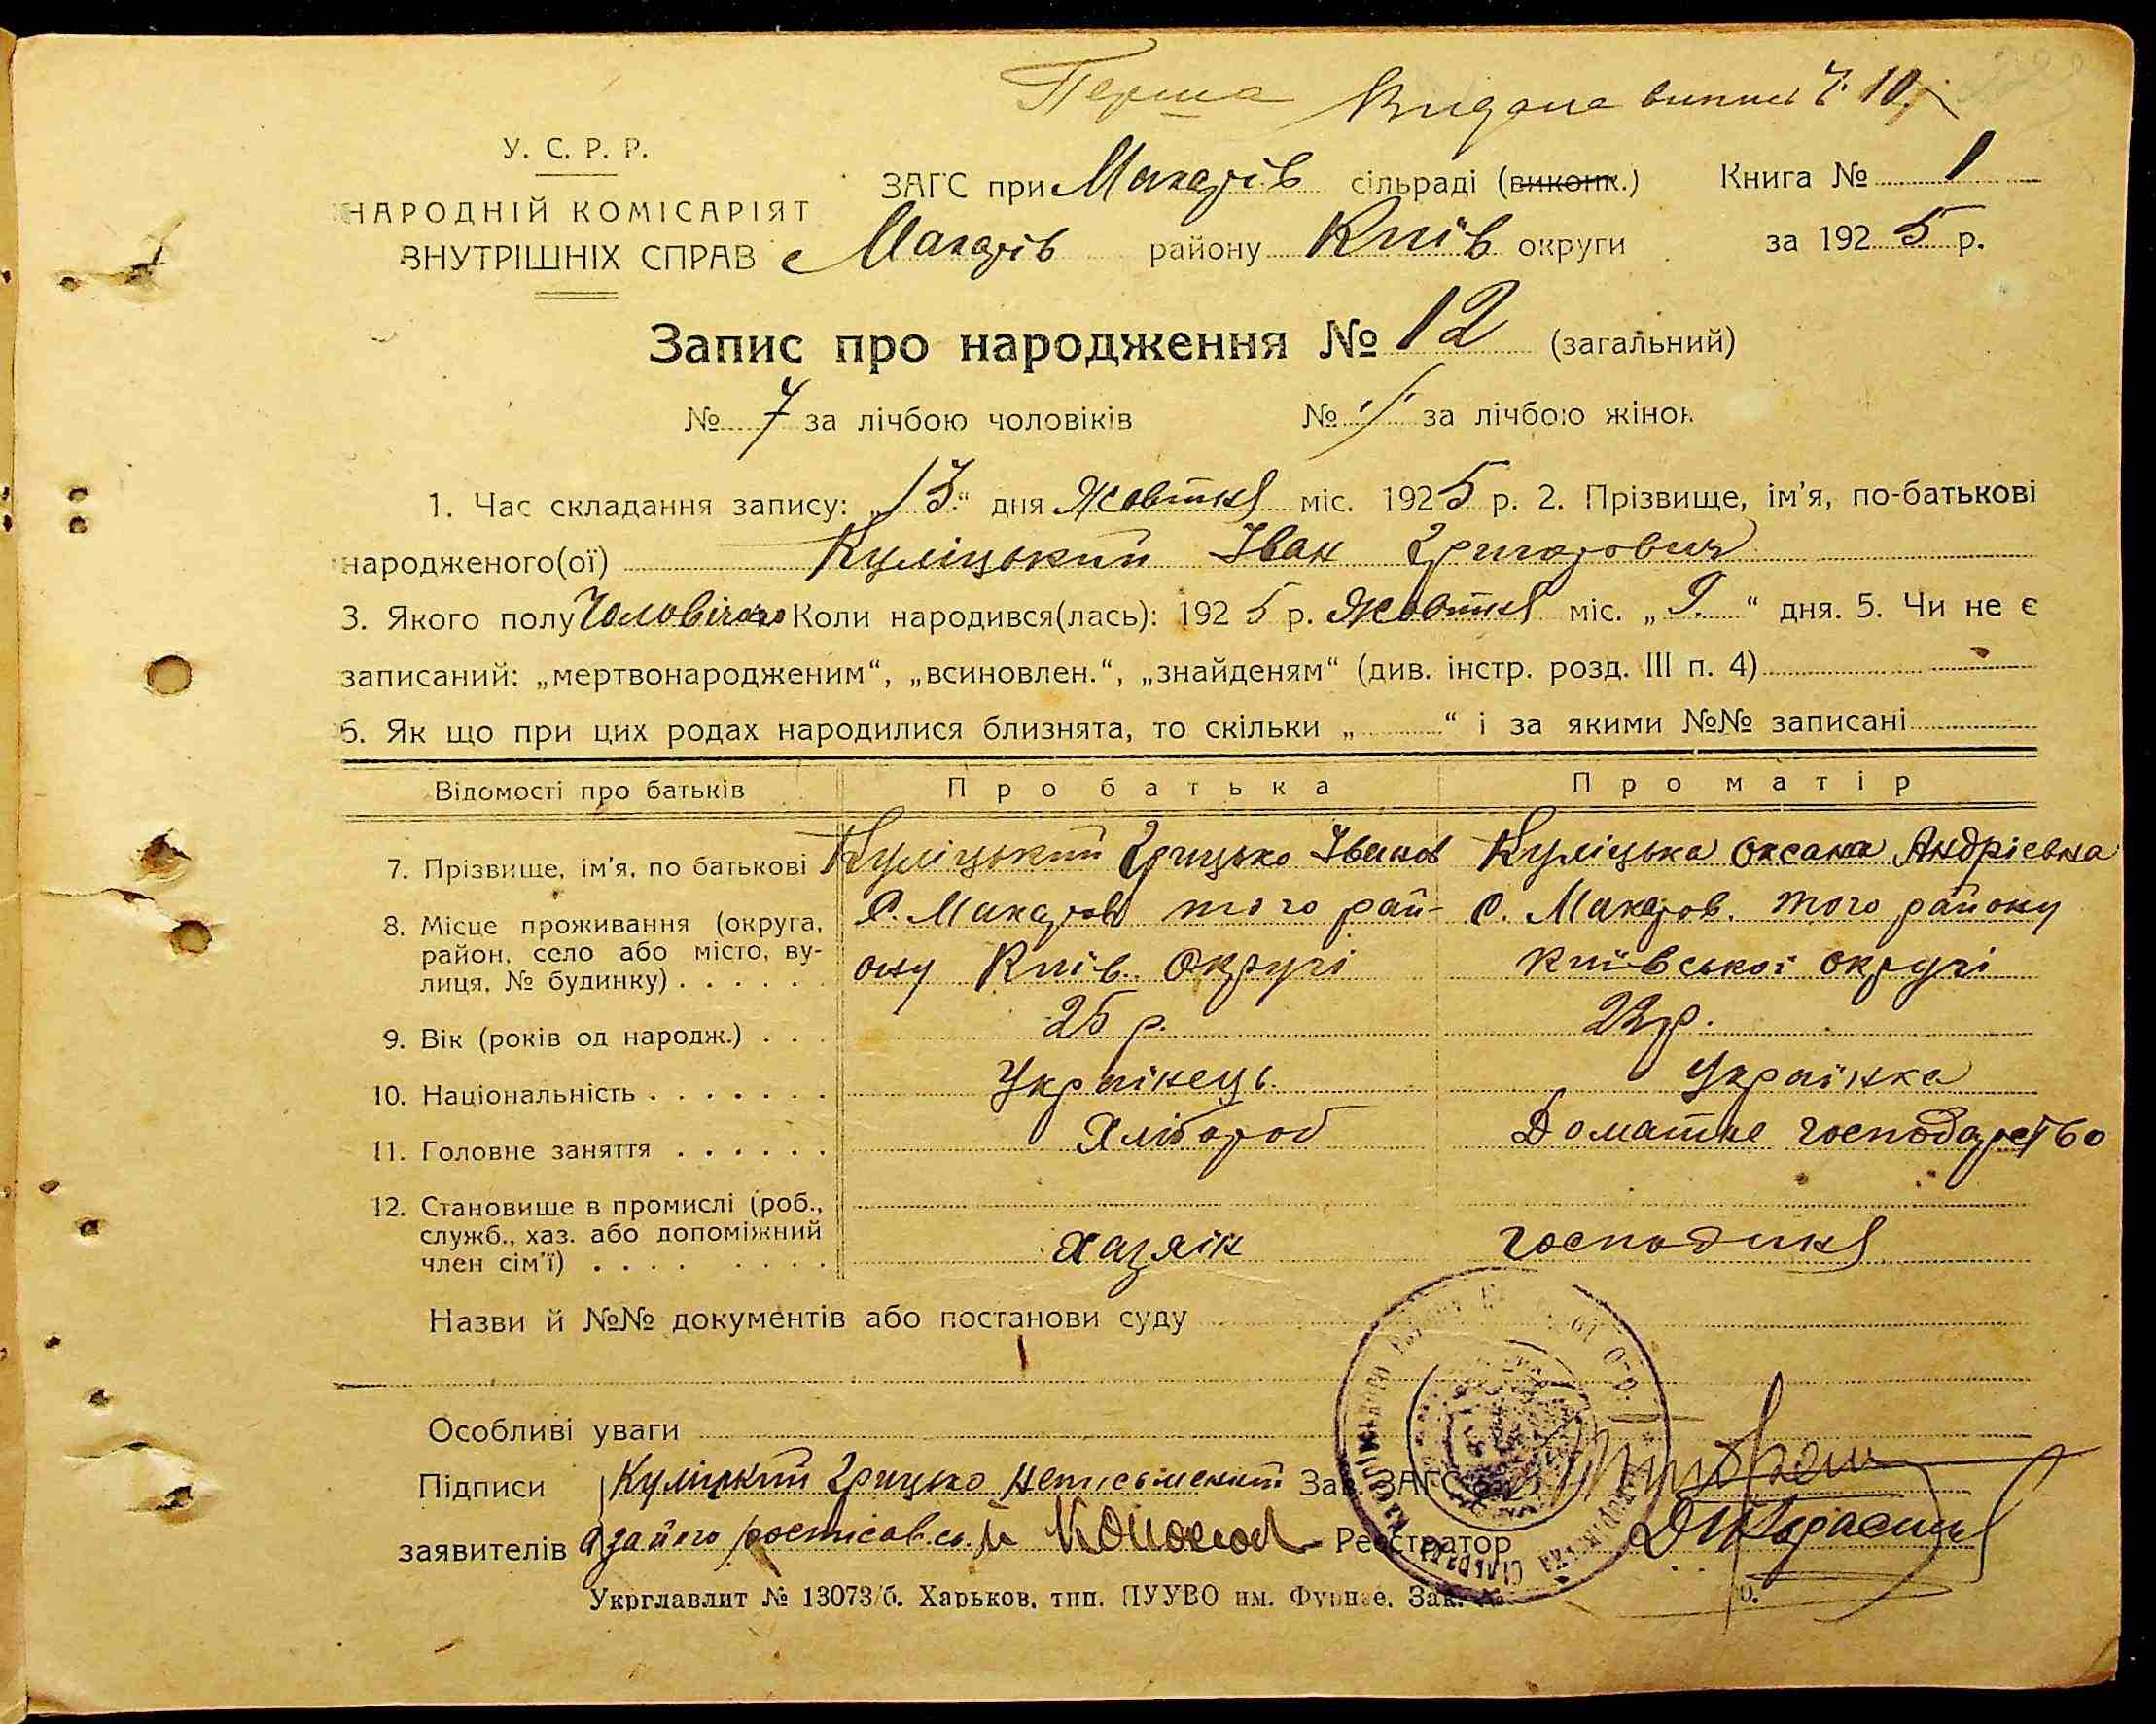 Перша Видана випись Ч. 10
У. С. Р. Р.
НАРОДНІЙ КОМІСАРІЯТ
ВНУТРІШНІХ СПРАВ
ЗАГС при Макарів сільраді (виконк.) Книга № 1
Макарів району Київ округи за 1925 р.
Запис про народження № 12 (загальний)
№ 7 за лічбою чоловіків № за лічбою жінок
1. Час складання запису: „13“ дня Жовтня міс. 1925 р. 2. Прізвище, ім’я, по-батькові
народженого(ої) Куліцький Іван Григорович
3. Якого полу Чоловічого Коли народився(лась): 1925 р. Жовтня міс. „9.“ дня. 5. Чи не є
записаний: „мертвонародженим“, „всиновлен.“, „знайденям“ (див. інстр. розд. III п. 4)
6. Як що при цих родах народилися близнята, то скільки „ “ і за якими №№ записані
Відомості про батьків Про батька Про матір
7. Прізвище, ім’я, по батькові Куліцький Грицько Іванов Куліцька Оксана Андріевна
8. Місце проживання (округа, район, село або місто, вулиця, № будинку) . . . . . .
С. Макаров того рай-
ону Київ. Округі
С. Макаров. того району
Київської округі
9. Вік (років од народж.) . . . 25 р. 22 р.
10. Національність . . . . . . . Українець Українка
11. Головне заняття . . . . . . Хлібороб Доматне господарство
12. Становище в промислі (роб.,
служб., хаз. або допоміжний
член сім’ї) . . . . . . . . Хазяїн Господиня
Назви й №№ документів або постанови суду
Особливі уваги
Підписи Куліцкий Грицько неписьмений Зав. ЗАГС’ом
заявителів а за його росписавсь Реєстратор
Укрглавлит № 13073/б. Харьков, тип. ПУУВО им. Фрунзе. Зак. №